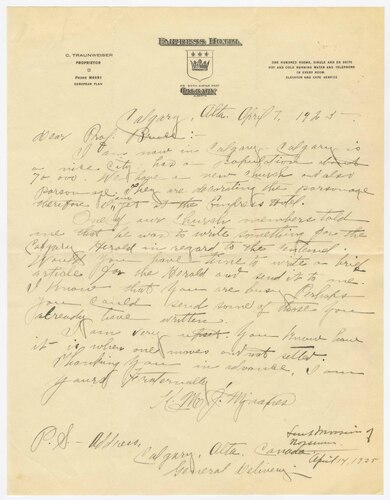 EMPRESS HOTEL
C. TRAUNWEISER
PROPRIETOR
EUROPEAN PLAN
ONE HUNDRED ROOMS, SINGLE AND EN SUITE
HOT AND COLD RUNNING WATER AND TELEPHONE
IN EVERY ROOM
ELEVATOR AND CAFE SERVICE
CALGARY
Calgary, Alta. April 7, 1925
Dear Prof. :-
I am now in Calgary. Calgary is
a nice City, has a population about
70 000 We have a new Church and also
parsonage. They are decorating the parsonage
therefore at the Empress Hotel.
One of our Church members told
me that he want to write something for the
Calgary Herald in regard to the
Would you have time to write a brief
article for the Herald and send it to me
I know that you are busy. Perhaps
you could send some of those you
already have written.
I am very upset. You know how
it is when one moves and not settled.
Thanking you in advance, I am
yours Fraternally
P.S - Address,
Calgary, Alta, Canada
General Delivery
April 14 1925